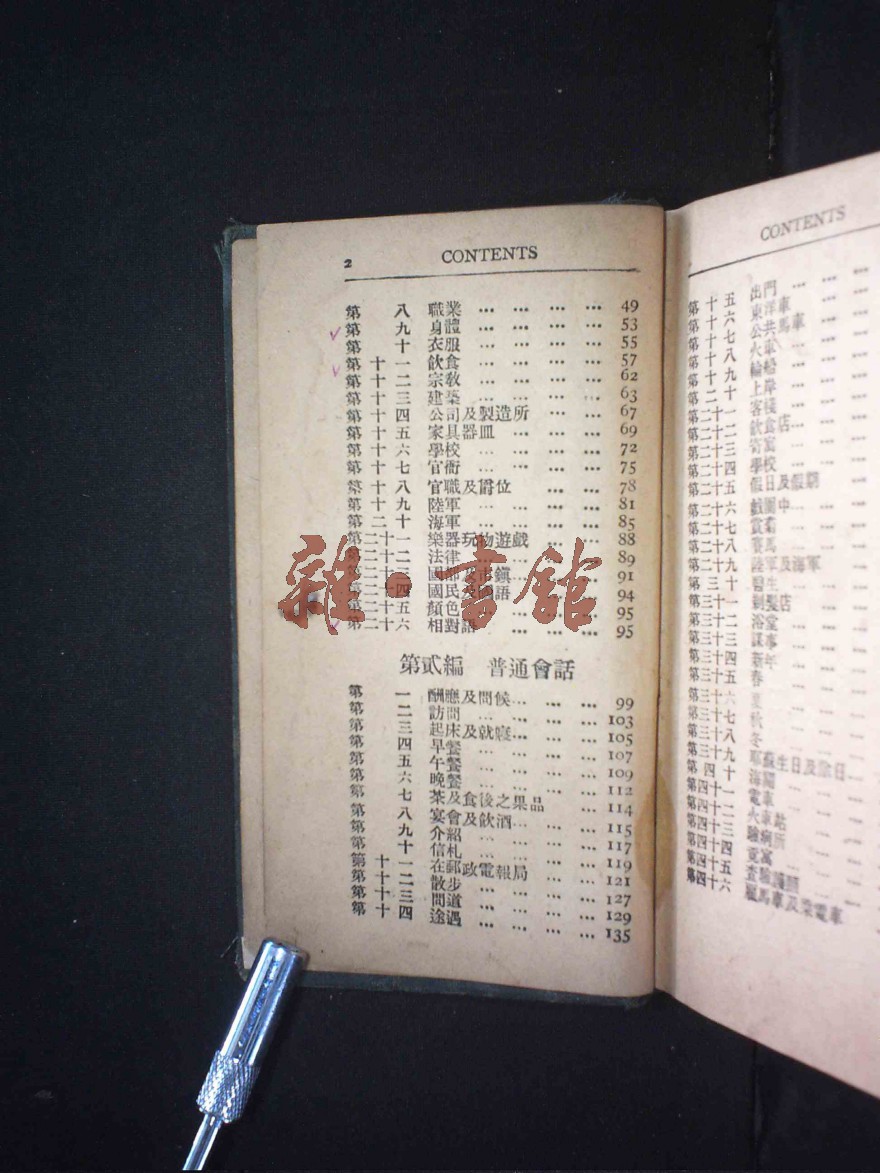 2 CONTENTS
第八 職業 ... ... ... ... 49
第九 身體 ... ... ... ... 53
第十 衣服 ... ... ... ... 55
第十一 飲食 ... ... ... ... 57
第十二 宗教 ... ... ... ... 62
第十三 建築 ... ... ... ... 63
第十四 公司及製造所 ... ... 67
第十五 家具器皿 ... ... ... 69
第十六 學校 ... ... ... ... 72
第十七 官衙 ... ... ... ... 75
第十八 官職及爵位 ... ... 78
第十九 陸軍 ... ... ... ... 81
第二十 海軍 ... ... ... ... 85
第二十一 樂器玩物遊戲 ... ... 88
第二十二 法律 ... ... ... 89
第二十三 國都及市鎮 ... ... 91
第二十四 國民及國語 ... ... 94
第二十五 顏色 ... ... ... 95
第二十六 相對語 ... ... ... 95
雜·書館
第貳編 普通會話
第一 酬應及問候 ... ... ... 99
第二 訪問 ... ... ... ... 103
第三 起床及就寢 ... ... ... 105
第四 早餐 ... ... ... ... 107
第五 午餐 ... ... ... ... 109
第六 晚餐 ... ... ... ... 112
第七 茶及食後之果品 ... ... 114
第八 宴會及飲酒 ... ... ... 115
第九 介紹 ... ... ... ... 117
第十 信札 ... ... ... ... 119
第十一 在郵政電報局 ... ... 121
第十二 散步 ... ... ... ... 127
第十三 問道 ... ... ... ... 129
第十四 途遇 ... ... ... ... 135
CONTENTS
第十五 出門 ... ... ...
第十六 東洋車 ... ...
第十七 公共馬車 ... ...
第十八 火車 ... ...
第十九 輪船 ... ...
第二十 上岸 ... ...
第二十一 客棧 ... ...
第二十二 飲食店 ... ...
第二十三 寄寓 ... ...
第二十四 學校 ... ...
第二十五 假日及假期 ...
第二十六 戲園中 ... ...
第二十七 賞菊 ... ...
第二十八 賽馬 ... ...
第二十九 陸軍及海軍 ...
第三十 醫生 ... ...
第三十一 剃髮店 ... ...
第三十二 浴堂 ... ...
第三十三 謀事 ... ...
第三十四 新年 ... ...
第三十五 春 ... ...
第三十六 夏 ... ...
第三十七 秋 ... ...
第三十八 冬 ... ...
第三十九 耶蘇生日及除日 ...
第四十 海關 ... ...
第四十一 電車 ... ...
第四十二 火車站 ... ...
第四十三 驗病所 ... ...
第四十四
第四十五 查驗護照 ... ...
第四十六 雇馬車及乘電車